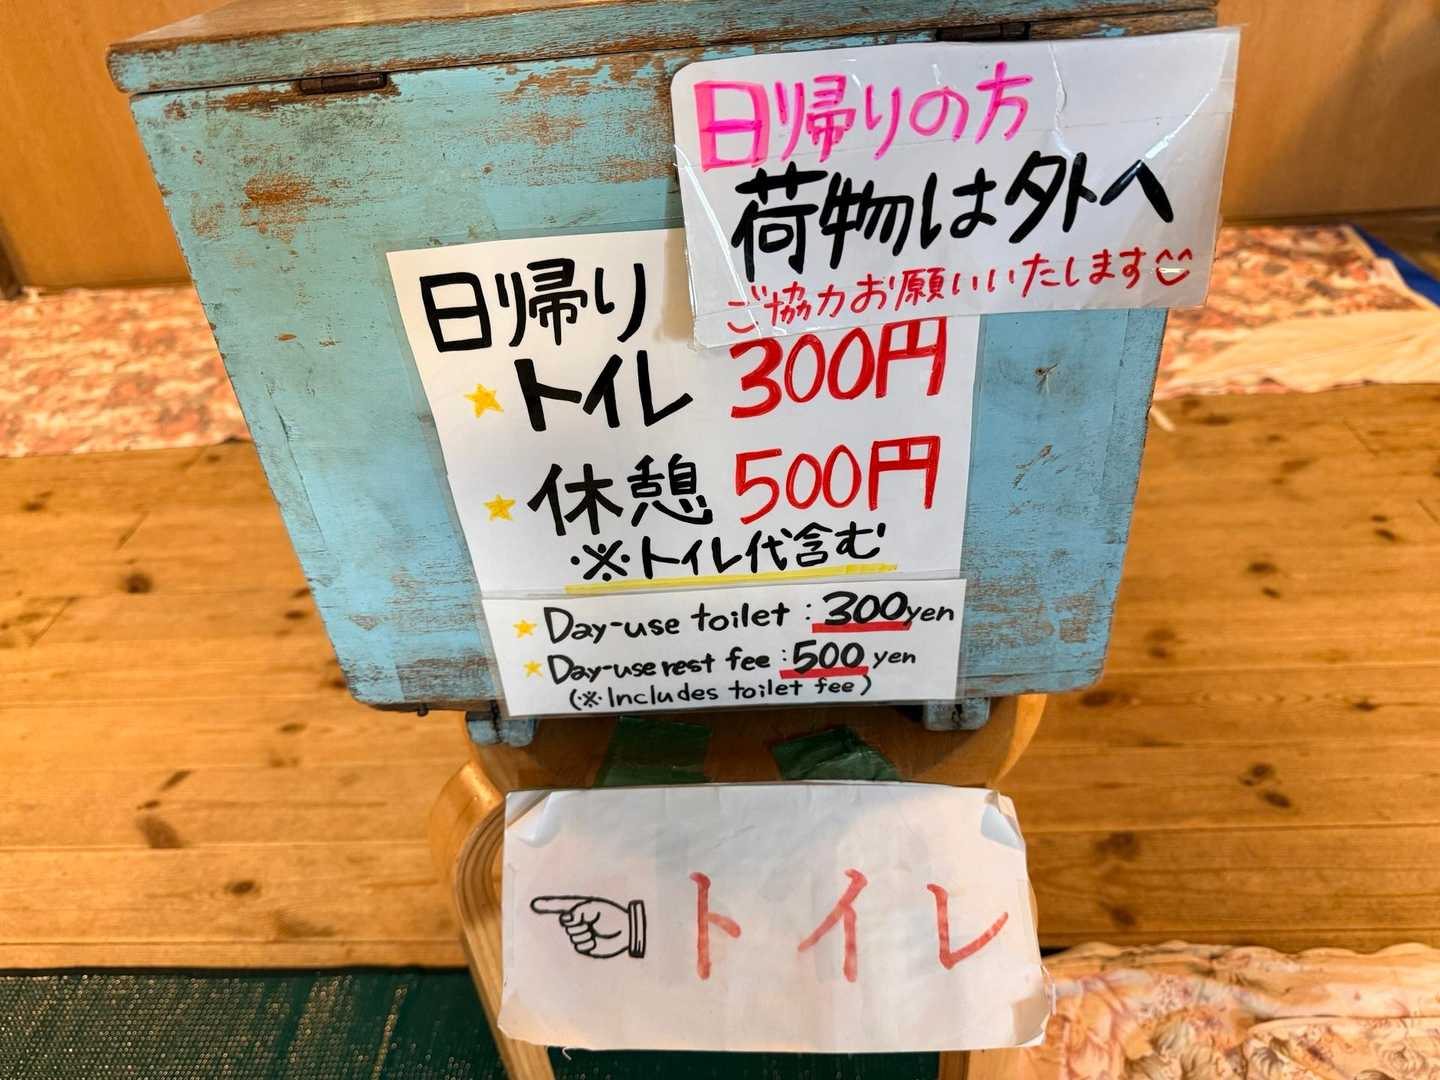 日帰りの方
荷物は外へ
ご協力お願いいたします
日帰り
トイレ 300円
休憩 500円
※トイレ代含む
Day-use toilet : 300yen
Day-use rest fee : 500 yen
(※Includes toilet fee)
トイレ